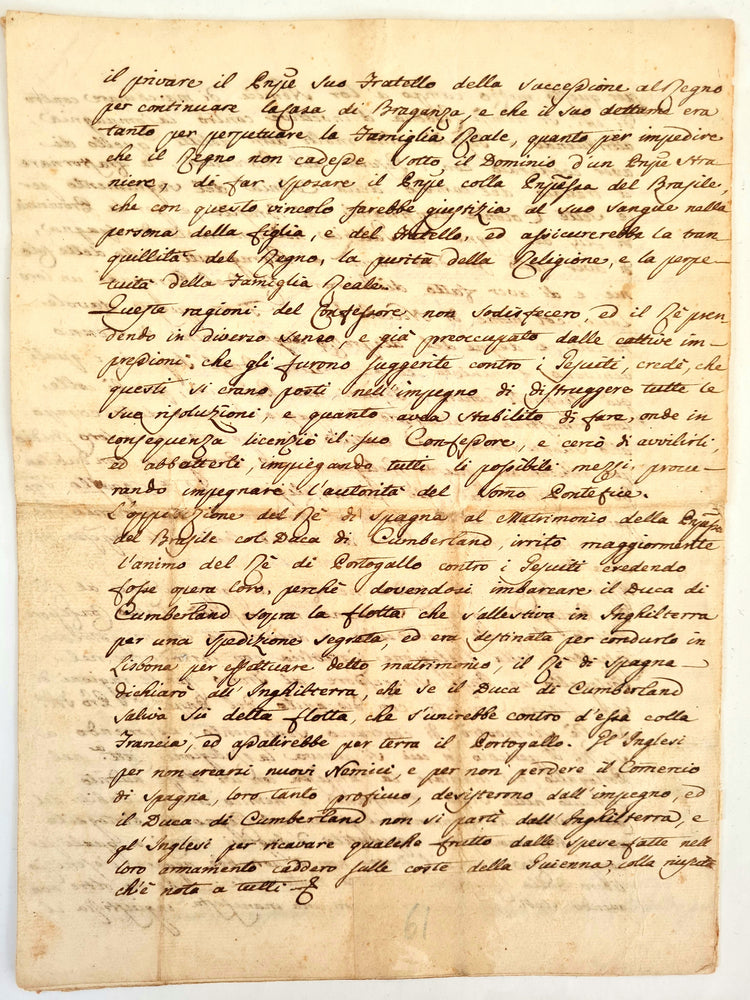 il privare il Pnpe suo Fratello della successione al Regno
per continuare la Casa di Braganza, e che il suo dettame era
tanto per perpetuare la Famiglia Reale, quanto per impedire
che il Regno non cadesse sotto il Dominio d'un Pnpe stra-
niere, di far sposare il Pnpe colla Pnpessa del Brasile,
che con questo vincolo farebbe giustizia al suo sangue nella
persona della figlia, e del fratello, ed assicurerebbe la tran-
quillità del Regno, la purità della Religione, e la perpe-
tuità della Famiglia Reale.
Queste ragioni del Confessore non sodisfecero, ed il Rè pren-
dendo in diverso senso, e già preoccupato dalle cattive im-
pressioni, che gli furono suggerite contro i Gesuiti, credè, che
questi si erano posti nell'impegno di distruggere tutte le
sue risoluzioni, e quanto avea stabilito di fare, onde in
conseguenza licenziò il suo Confessore, e cercò di avvilirli,
ed abbatterli, impiegando tutti li possibili mezzi, procu-
rando impegnare l'autorità del Somo Pontefice.
L'opposizione del Rè di Spagna al Matrimonio della Pnpessa
del Brasile col Duca di Cumberland, irritò maggiormente
l'animo del Rè di Portogallo contro i Gesuiti credendo
fosse opera loro, perchè dovendosi imbarcare il Duca di
Cumberland sopra la flotta che s'allestiva in Inghilterra
per una spedizione segrata, ed era destinata per condurlo in
Lisbona per effattuare detto matrimonio, il Rè di Spagna
dichiarò all'Inghilterra, che se il Duca di Cumberland
saliva sù detta flotta, che s'unirebbe contro d'essa colla
Francia, ed assalirebbe per terra il Portogallo. Gl'Inglesi
per non crearsi nuovi Nemici, e per non perdere il Comercio
di Spagna, loro tanto proficuo, desisterono dall'impegno, ed
il Duca di Cumberland non si partì dall'Inghilterra, e
gl'Inglesi per ricavare qualche frutto dalle spese fatte nell
loro armamento caddero sulle coste della Guienna, colla riuscita
ch'è nota a tutti
61